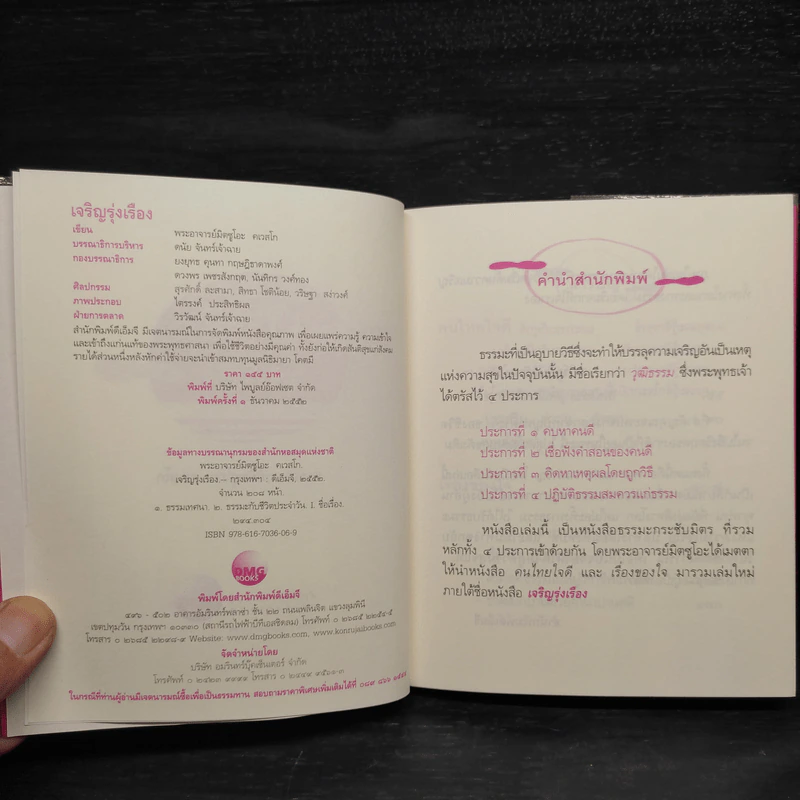 เจริญรุ่งเรือง
เขียน พระอาจารย์มิตซูโอะ คเวสโก
บรรณาธิการบริหาร ดนัย จันทร์เจ้าฉาย
กองบรรณาธิการ ยงยุทธ คุนทา กฤษฎิธาดาพงศ์
ดวงพร เพชรสังกฤต, นันทิกร วงศ์ทอง
ศิลปกรรม สุรศักดิ์ ละลามา, สิทธา โชติน้อย, วริษฐา สง่าวงค์
ภาพประกอบ ไตรรงค์ ประสิทธิผล
ฝ่ายการตลาด วิรวัฒน์ จันทร์เจ้าฉาย
สำนักพิมพ์ดีเอ็มจี มีเจตนารมณ์ในการจัดพิมพ์หนังสือคุณภาพ เพื่อเผยแพร่ความรู้ ความเข้าใจ
และเข้าถึงแก่นแท้ของพระพุทธศาสนา เพื่อใช้ชีวิตอย่างมีคุณค่า ทั้งยังก่อให้เกิดสันติสุขแก่สังคม
รายได้ส่วนหนึ่งหลังหักค่าใช้จ่ายจะนำเข้าสมทบทุนมูลนิธิมายา โคตมี
ราคา ๑๔๕ บาท
พิมพ์ที่ บริษัท ไพบูลย์อ๊อฟเซต จำกัด
พิมพ์ครั้งที่ ๑ ธันวาคม ๒๕๕๒
ข้อมูลทางบรรณานุกรมของสำนักหอสมุดแห่งชาติ
พระอาจารย์มิตซูโอะ คเวสโก.
เจริญรุ่งเรือง.-- กรุงเทพฯ : ดีเอ็มจี, ๒๕๕๒.
จำนวน ๒๐๘ หน้า.
๑. ธรรมเทศนา. ๒. ธรรมะกับชีวิตประจำวัน. I. ชื่อเรื่อง.
๒๙๔.๓๐๔
ISBN 978-616-7036-06-9
DMG
BOOKS
พิมพ์โดยสำนักพิมพ์ดีเอ็มจี
๔๙๖ - ๕๐๒ อาคารอัมรินทร์พลาซ่า ชั้น ๒๒ ถนนเพลินจิต แขวงลุมพินี
เขตปทุมวัน กรุงเทพฯ ๑๐๓๓๐ (สถานีรถไฟฟ้าบีทีเอสชิดลม) โทรศัพท์ ๐ ๒๖๘๕ ๒๒๕๔-๕
โทรสาร ๐ ๒๖๘๕ ๒๒๙๘-๙ Website: www.dmgbooks.com, www.konrujaibooks.com
จัดจำหน่ายโดย
บริษัท อมรินทร์บุ๊คเซ็นเตอร์ จำกัด
โทรศัพท์ ๐ ๒๔๒๓ ๙๙๙๙ โทรสาร ๐ ๒๔๔๙ ๙๕๖๑-๓
ในกรณีที่ท่านผู้อ่านมีเจตนารมณ์ซื้อเพื่อเป็นธรรมทาน สอบถามราคาพิเศษเพิ่มเติมได้ที่
คำนำสำนักพิมพ์
ธรรมะที่เป็นอุบายวิธีซึ่งจะทำให้บรรลุความเจริญอันเป็นเหตุ
แห่งความสุขในปัจจุบันนั้น มีชื่อเรียกว่า วุฒิธรรม ซึ่งพระพุทธเจ้า
ได้ตรัสไว้ ๔ ประการ
ประการที่ ๑ คบหาคนดี
ประการที่ ๒ เชื่อฟังคำสอนของคนดี
ประการที่ ๓ คิดหาเหตุผลโดยถูกวิธี
ประการที่ ๔ ปฏิบัติธรรมสมควรแก่ธรรม
หนังสือเล่มนี้ เป็นหนังสือธรรมะกระชับมิตร ที่รวม
หลักทั้ง ๔ ประการเข้าด้วยกัน โดยพระอาจารย์มิตซูโอะได้เมตตา
ให้นำหนังสือ คนไทยใจดี และ เรื่องของใจ มารวมเล่มใหม่
ภายใต้ชื่อหนังสือ เจริญรุ่งเรือง